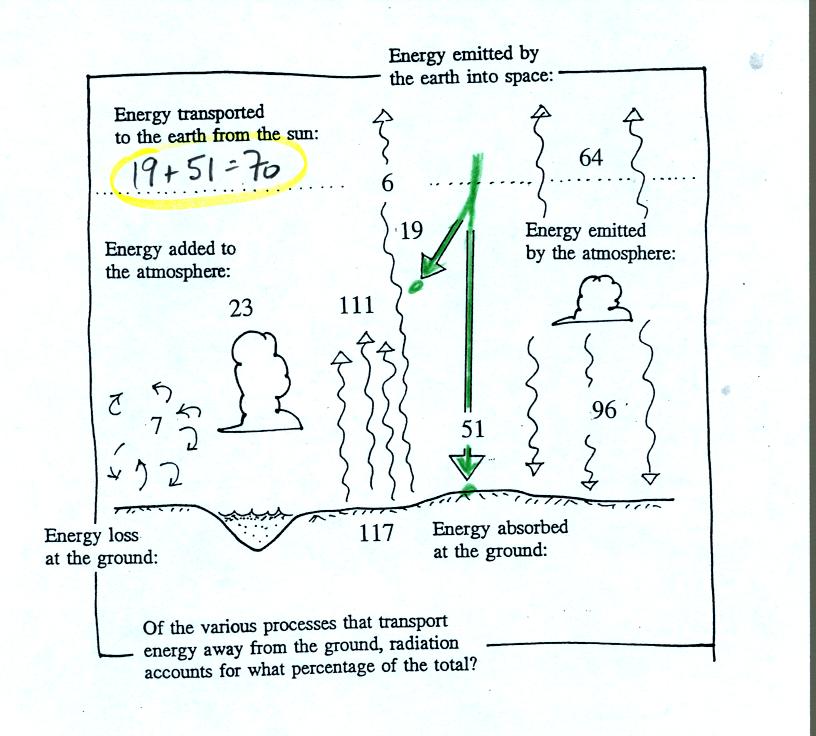 Energy emitted by
the earth into space:
Energy transported
to the earth from the sun:
19+51=70
6
64
19
Energy emitted
by the atmosphere:
Energy added to
the atmosphere:
23
111
7
51
96
Energy loss
at the ground:
117
Energy absorbed
at the ground:
Of the various processes that transport
energy away from the ground, radiation
accounts for what percentage of the total?